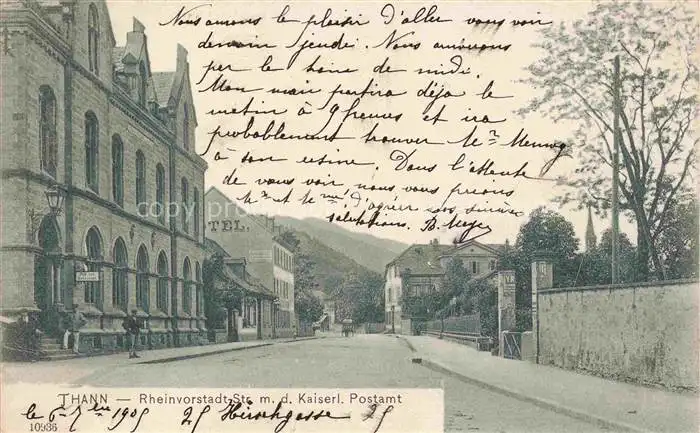 Nous aurons le plaisir d'aller vous voir
demain jeudi. Nous arriverons
par le train de midi.
Mon mari partira déja le
matin à 9 heures et ira
probablement trouver Mr
à son usine. Dans l'attente
de vous voir, nous vous prions
Mr et Mme, d'agréer nos sincères
salutations. B. Meyer
TEL
THANN — Rheinvorstadt-Str. m. d. Kaiserl. Postamt
le 6 1905 25 Hirschgasse 25
10936